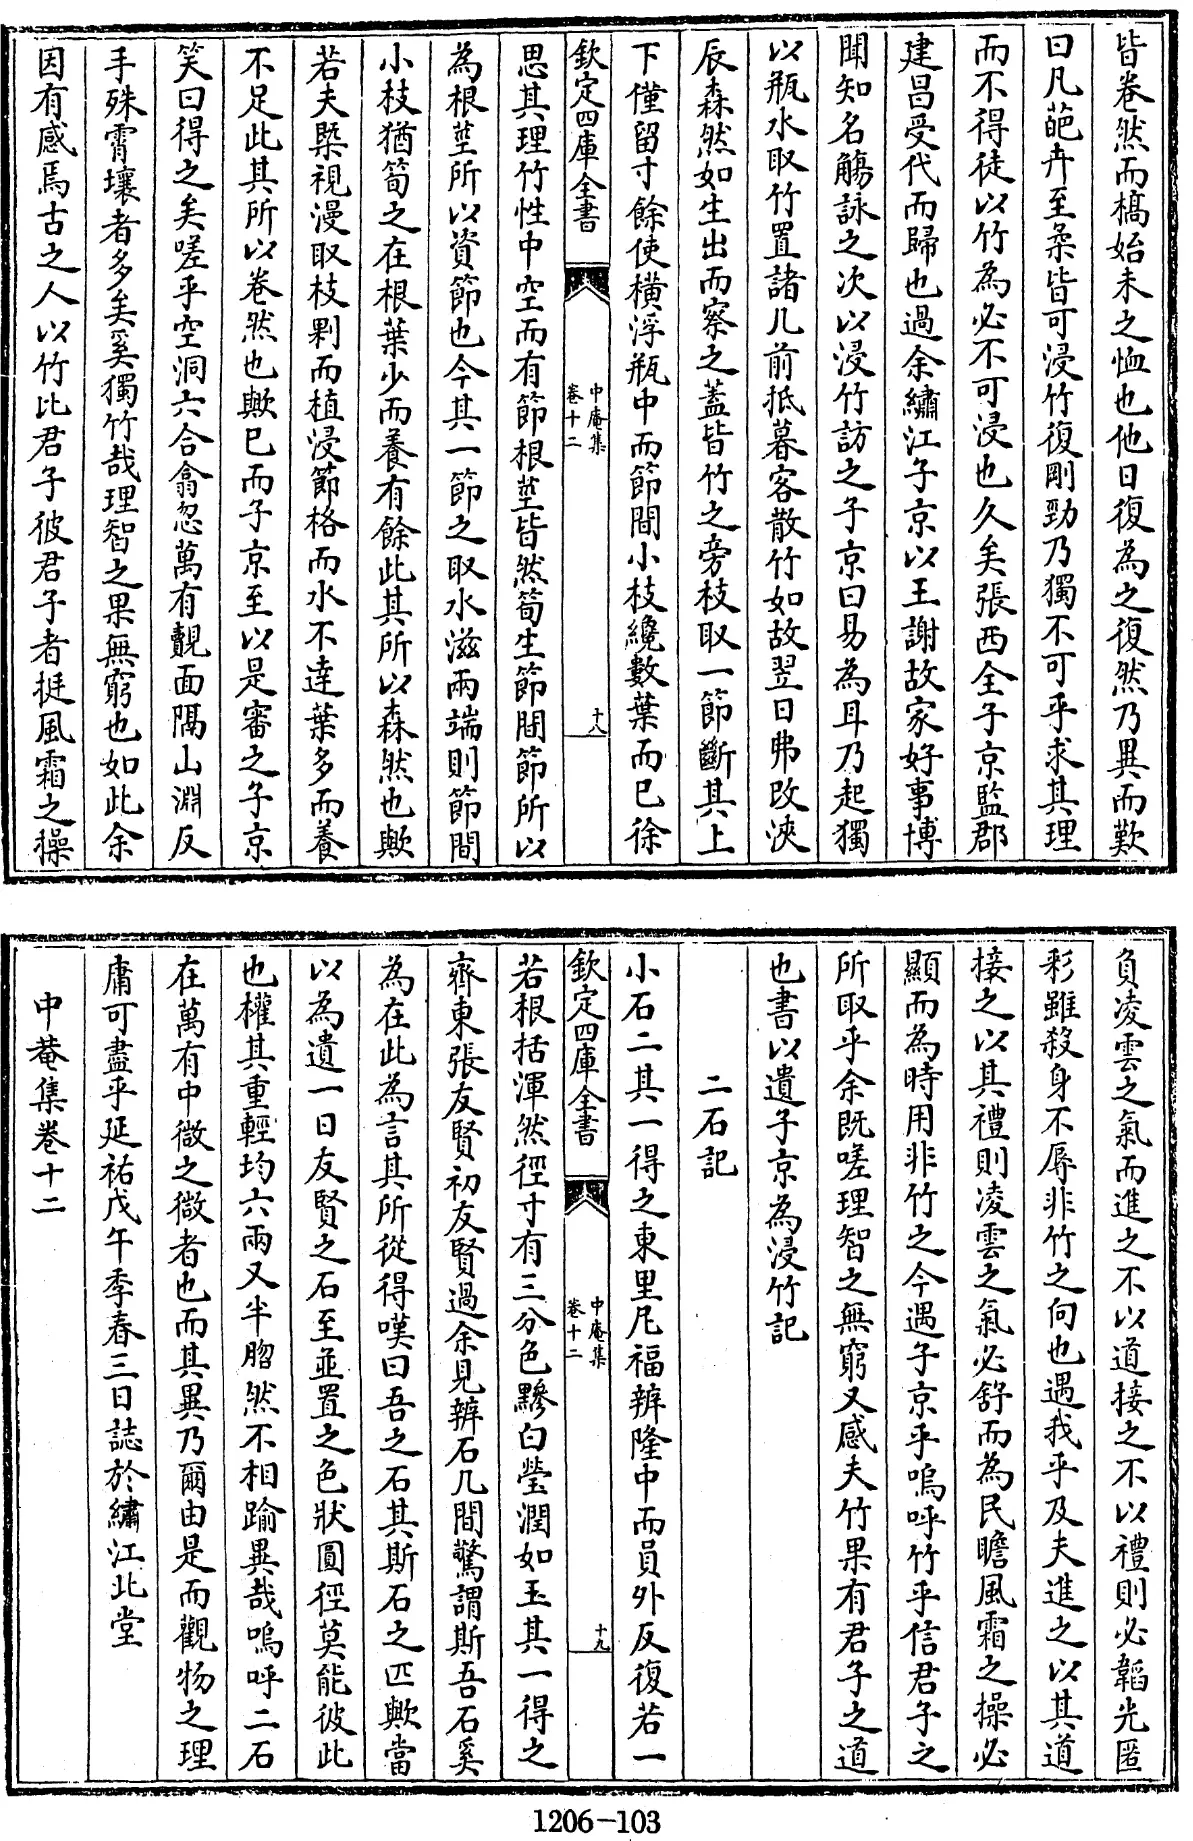 皆卷然而槁始未之恤也他日復為之復然乃異而歎
曰凡葩卉至柔皆可浸竹復剛勁乃獨不可乎求其理
而不得徒以竹為必不可浸也久矣張西全子京監郡
建昌受代而歸也過余繡江子京以王謝故家好事博
聞知名觴詠之次以浸竹訪之子京曰易為耳乃起獨
以瓶水取竹置諸几前抵暮客散竹如故翌日弗改浹
辰森然如生出而察之蓋皆竹之旁枝取一節斷其上
下僅留寸餘使橫浮瓶中而節間小枝纔數葉而已徐
欽定四庫全書
中庵集
卷十二
十八
思其理竹性中空而有節根莖皆然筍生節間節所以
為根莖所以資節也今其一節之取水滋兩端則節間
小枝猶筍之在根葉少而養有餘此其所以森然也歟
若夫槩視漫取枝剿而植浸節格而水不達葉多而養
不足此其所以卷然也歟已而子京至以是審之子京
笑曰得之矣嗟乎空洞六合翕忽萬有覿面隔山淵反
手殊霄壤者多矣奚獨竹哉理智之果無窮也如此余
因有感焉古之人以竹比君子彼君子者挺風霜之操
負凌雲之氣而進之不以道接之不以禮則必韜光匿
彩雖殺身不辱非竹之向也遇我乎及夫進之以其道
接之以其禮則凌雲之氣必舒而為民瞻風霜之操必
顯而為時用非竹之今遇子京乎嗚呼竹乎信君子之
所取乎余既嗟理智之無窮又感夫竹果有君子之道
也書以遺子京為浸竹記
二石記
小石二其一得之東里凡福辨隆中而員外反復若一
欽定四庫全書
中庵集
卷十二
十九
若根括渾然徑寸有三分色黲白瑩潤如玉其一得之
齊東張友賢初友賢過余見辨石几間驚謂斯吾石奚
為在此為言其所從得嘆曰吾之石其斯石之匹歟當
以為遺一日友賢之石至並置之色狀圓徑莫能彼此
也權其重輕均六兩又半脗然不相踰異哉嗚呼二石
在萬有中微之微者也而其異乃爾由是而觀物之理
庸可盡乎延祐戊午季春三日誌於繡江北堂
中菴集卷十二
1206-103